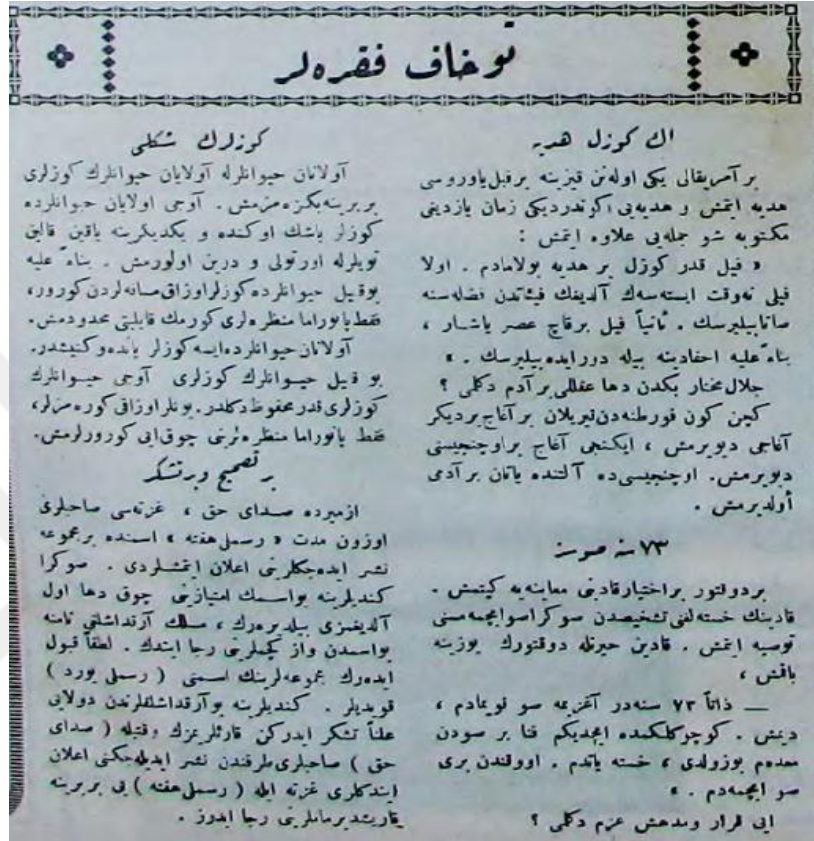 توخاف فقره‌لر
اك كوزل هديه
بر آمريقالى يكى اوله‌نن قيزينه بر فيل ياوروسى
هديه ايتمش و هديه‌يى كوندرديكى زمان يازدينى
مكتوبه شو جمله‌يى علاوه ايتمش :
« فيل قدر كوزل بر هديه بولامادم . اولا
فيلى نه‌وقت ايسته‌سه‌ك آلديغك فيئاتدن فضله‌سنه
صاتابيليرسك . ثانياً فيل برقاچ عصر ياشار ،
بناءً عليه احفادينه بيله دور ايده‌بيليرسك . »
جلال مختار بكدن دها عقللى بر آدم دكلمى ؟
كچن كون فورطنه‌دن قيريلان بر آغاج بر ديكر
آغاجى ديويرمش ، ايكنجى آغاج بر اوچنجيسنى
ديويرمش . اوچنجيسى‌ده آلتنده ياتان بر آدمى
أولديرمش .
٧٣ سنه صوسز
بر دوقتور بر اختيار قادينى معاينه‌يه كيتمش .
قادينك خسته‌لغنى تشخيصدن سوكرا صو ايچمه‌سنى
توصيه ايتمش . قادين حيرتله دوقتورك يوزينه
باقمش ،
— ذاتاً ٧٣ سنه‌در آغزيمه صو قويمادم ،
ديمش . كوچوكلكمده ايچديكم فنا بر سودن
معده‌م بوزولدى ، خسته ياتدم . او وقتدن برى
صو ايچمه‌دم . »
ايى قرار ومدهش عزم دكلمى ؟
كوزلرك شكلى
آولانان حيوانلرله آولايان حيوانلرك كوزلرى
بر برينه بكزه‌مزمش . آوجى اولايان حيوانلرده
كوزلر باشك اوكنده و يكديكرينه ياقين قالين
تويلرله اورتولى و درين اولورمش . بناءً عليه
بو قبيل حيوانلرده كوزلر اوزاق مسافه‌لردن كورور ،
فقط پانوراما منظره‌لرى كورمك قابليتى محدودمش .
آولانان حيوانلرده ايسه كوزلر يانده و كنيشدر .
بو قبيل حيوانلرك كوزلرى آوجى حيوانلرك
كوزلرى قدر محفوظ دكلدر . بونلر اوزاقى كوره‌مزلر ،
فقط پانوراما منظره‌لرينى چوق ايى كورورلرمش .
بر تصحيح و بر تشكر
ازميرده صداى حق ، غزته‌سى صاحبلرى
اوزون مدت « رسملى هفته » اسمنده بر مجموعه
نشر ايده‌جكلرينى اعلان ايتمشلردى . صوكرا
كنديلرينه بو اسمك امتيازينى چوق دها اول
آلديغمزى بيلديره‌رك ، مسلك آرقداشلغى نامنه
بو اسمدن واز كچملرينى رجا ايتدك . لطفاً قبول
ايده‌رك مجموعه‌لرينك اسمنى ( رسملى يورد )
قويديلر . كنديلرينه بو آرقداشلقلرندن دولايى
علناً تشكر ايدركن قارئلريمزك وقتيله ( صداى
حق ) صاحبلرى طرفندن نشر ايديله‌جكنى اعلان
ايتدكلرى غزته ايله ( رسملى هفته ) يى بر برينه
قاريشديرمامالرينى رجا ايدرز .